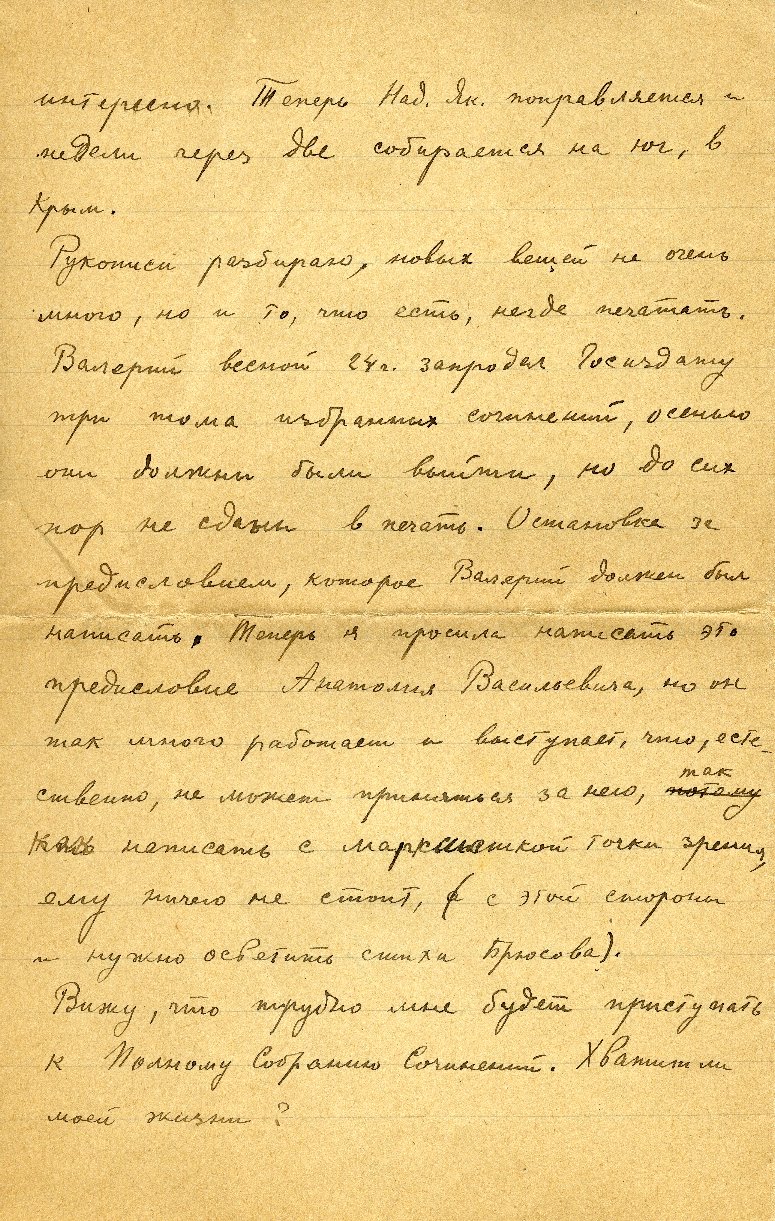 интересно. Теперь Над. Як. поправляется и
недели через две собирается на юг, в
Крым.
Рукописи разбираю, новых вещей не очень
много, но и то, что есть, негде печатать.
Валерий весной 24 г. запродал Госиздату
три тома избранных сочинений, осенью
они должны были выйти, но до сих
пор не сданы в печать. Остановка за
предисловием, которое Валерий должен был
написать. Теперь я просила написать это
предисловие Анатолия Васильевича, но он
так много работает и выступает, что, есте-
ственно, не может приняться за него, потому так
как написать с марксисткой точки зрения,
ему ничего не стоит, (с этой стороны
и нужно осветить стихи Брюсова).
Вижу, что трудно мне будет приступать
к Полному Собранию Сочинений. Хватит ли
моей жизни?